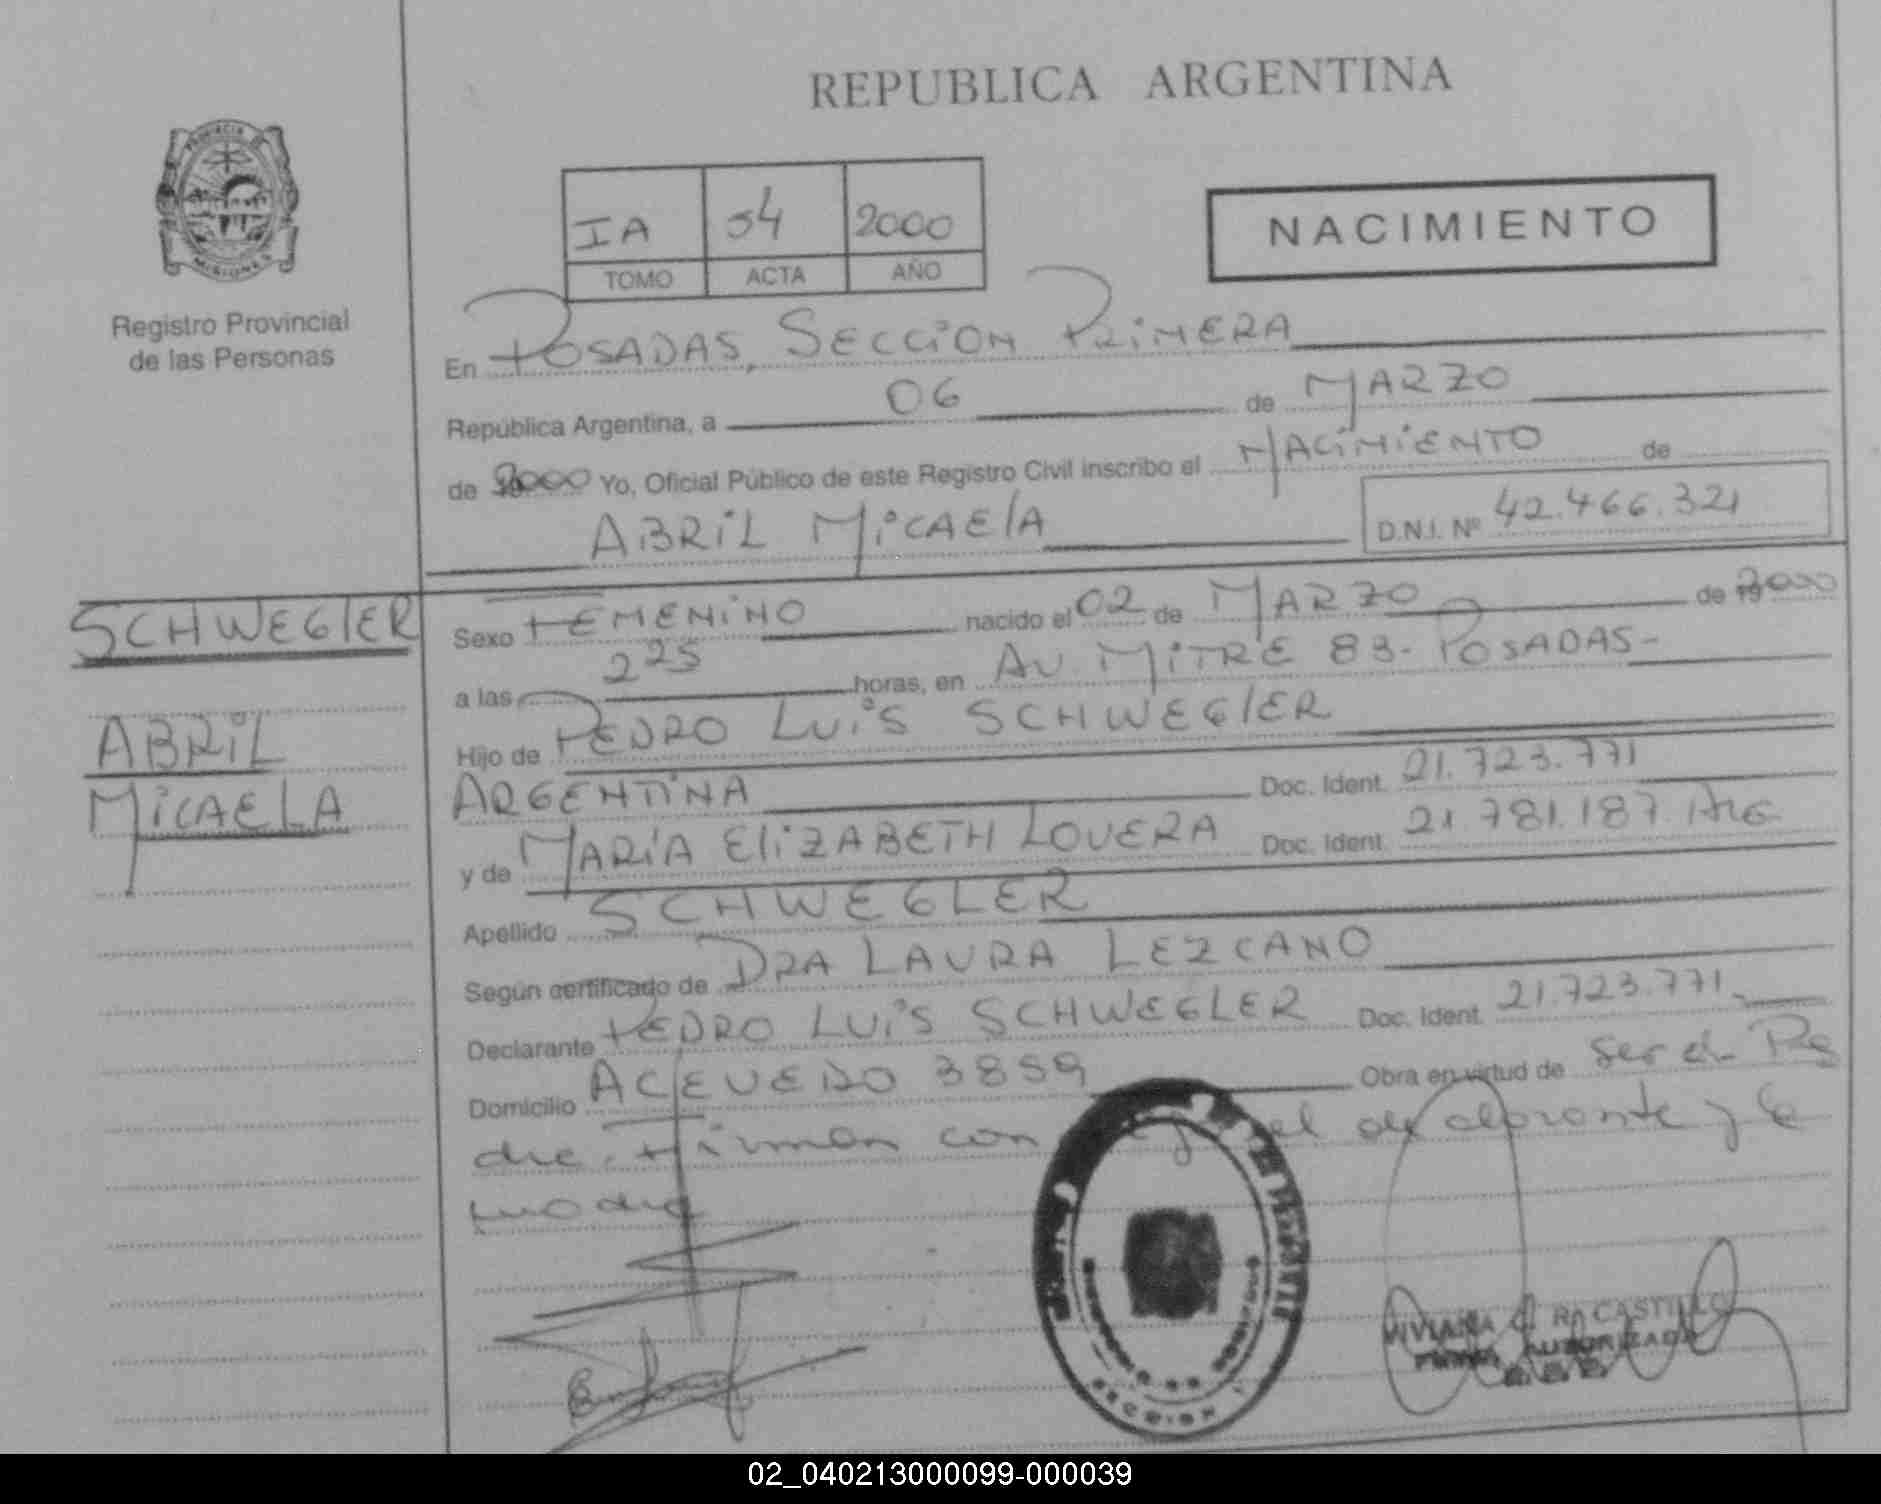 REPUBLICA ARGENTINA
PROVINCIA
MISIONES
Registro Provincial
de las Personas
IA 54 2000
TOMO ACTA AÑO
NACIMIENTO
En POSADAS, SECCION PRIMERA
República Argentina, a 06 de MARZO
de 2000 Yo, Oficial Público de este Registro Civil inscribo el NACIMIENTO de
ABRIL MICAELA D.N.I. Nº 42.466.321
SCHWEGLER
ABRIL
MICAELA
Sexo FEMENINO nacido el 02 de MARZO de 2000
a las 2 25 horas, en AV. MITRE 83- POSADAS-
Hijo de PEDRO LUIS SCHWEGLER
ARGENTINA Doc. Ident. 21.723.771
y de MARIA ELIZABETH LOVERA Doc. Ident. 21.781.187. ARG
Apellido SCHWEGLER
Según certificado de DRA LAURA LEZCANO
Declarante PEDRO LUIS SCHWEGLER Doc. Ident. 21.723.771.-
Domicilio ACEVEDO 3859 Obra en virtud de ser el Pa
dre. Firman con el declarante y la
madre
SECCION
VIVIANA CASTILLO
FIRMA AUTORIZADA
02_040213000099-000039